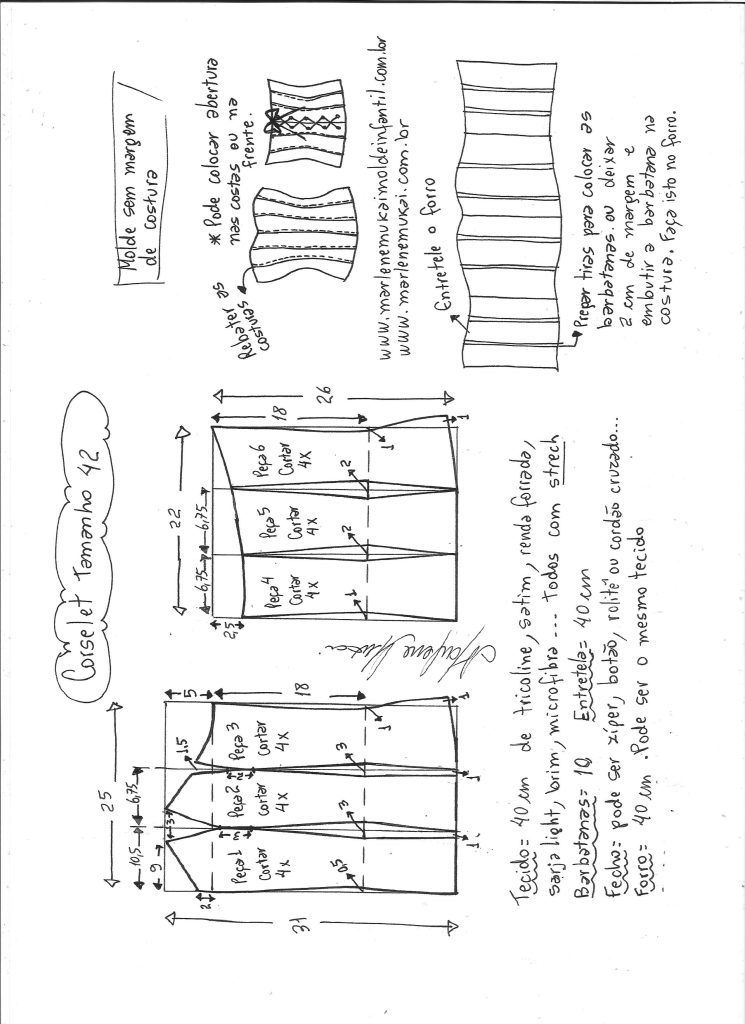 Corselet Tamanho 42
Molde sem margem
de costura
25
10,5
6,75
9
3
5
1,5
2
3
2
31
18
Peça 1
Cortar
4x
Peça 2
cortar
4x
Peça 3
cortar
4x
0,5
3
3
1
1
1
1
22
6,75
6,75
2,5
18
26
Peça 4
Cortar
4x
Peça 5
Cortar
4x
Peça 6
Cortar
4x
1
2
2
1
1
Rebater se
costuras
* Pode colocar abertura
nas costas ou na
frente.
www.marlenemukaimoldeinfantil.com.br
www.marlenemukai.com.br
Entretele o forro
Prepar tiras para colocar as
barbatanas ou deixar
2 cm de margem e
embutir a barbatana na
costura. Faça isto no forro.
Tecido= 40 cm de tricoline, satim, renda forrada,
sarja light, brim, microfibra... Todos com strech
Barbatanas= 10 Entretela= 40 cm
Fecho= pode ser zíper, botão, "rolitê" ou cordão cruzado...
Forro= 40 cm. Pode ser o mesmo tecido